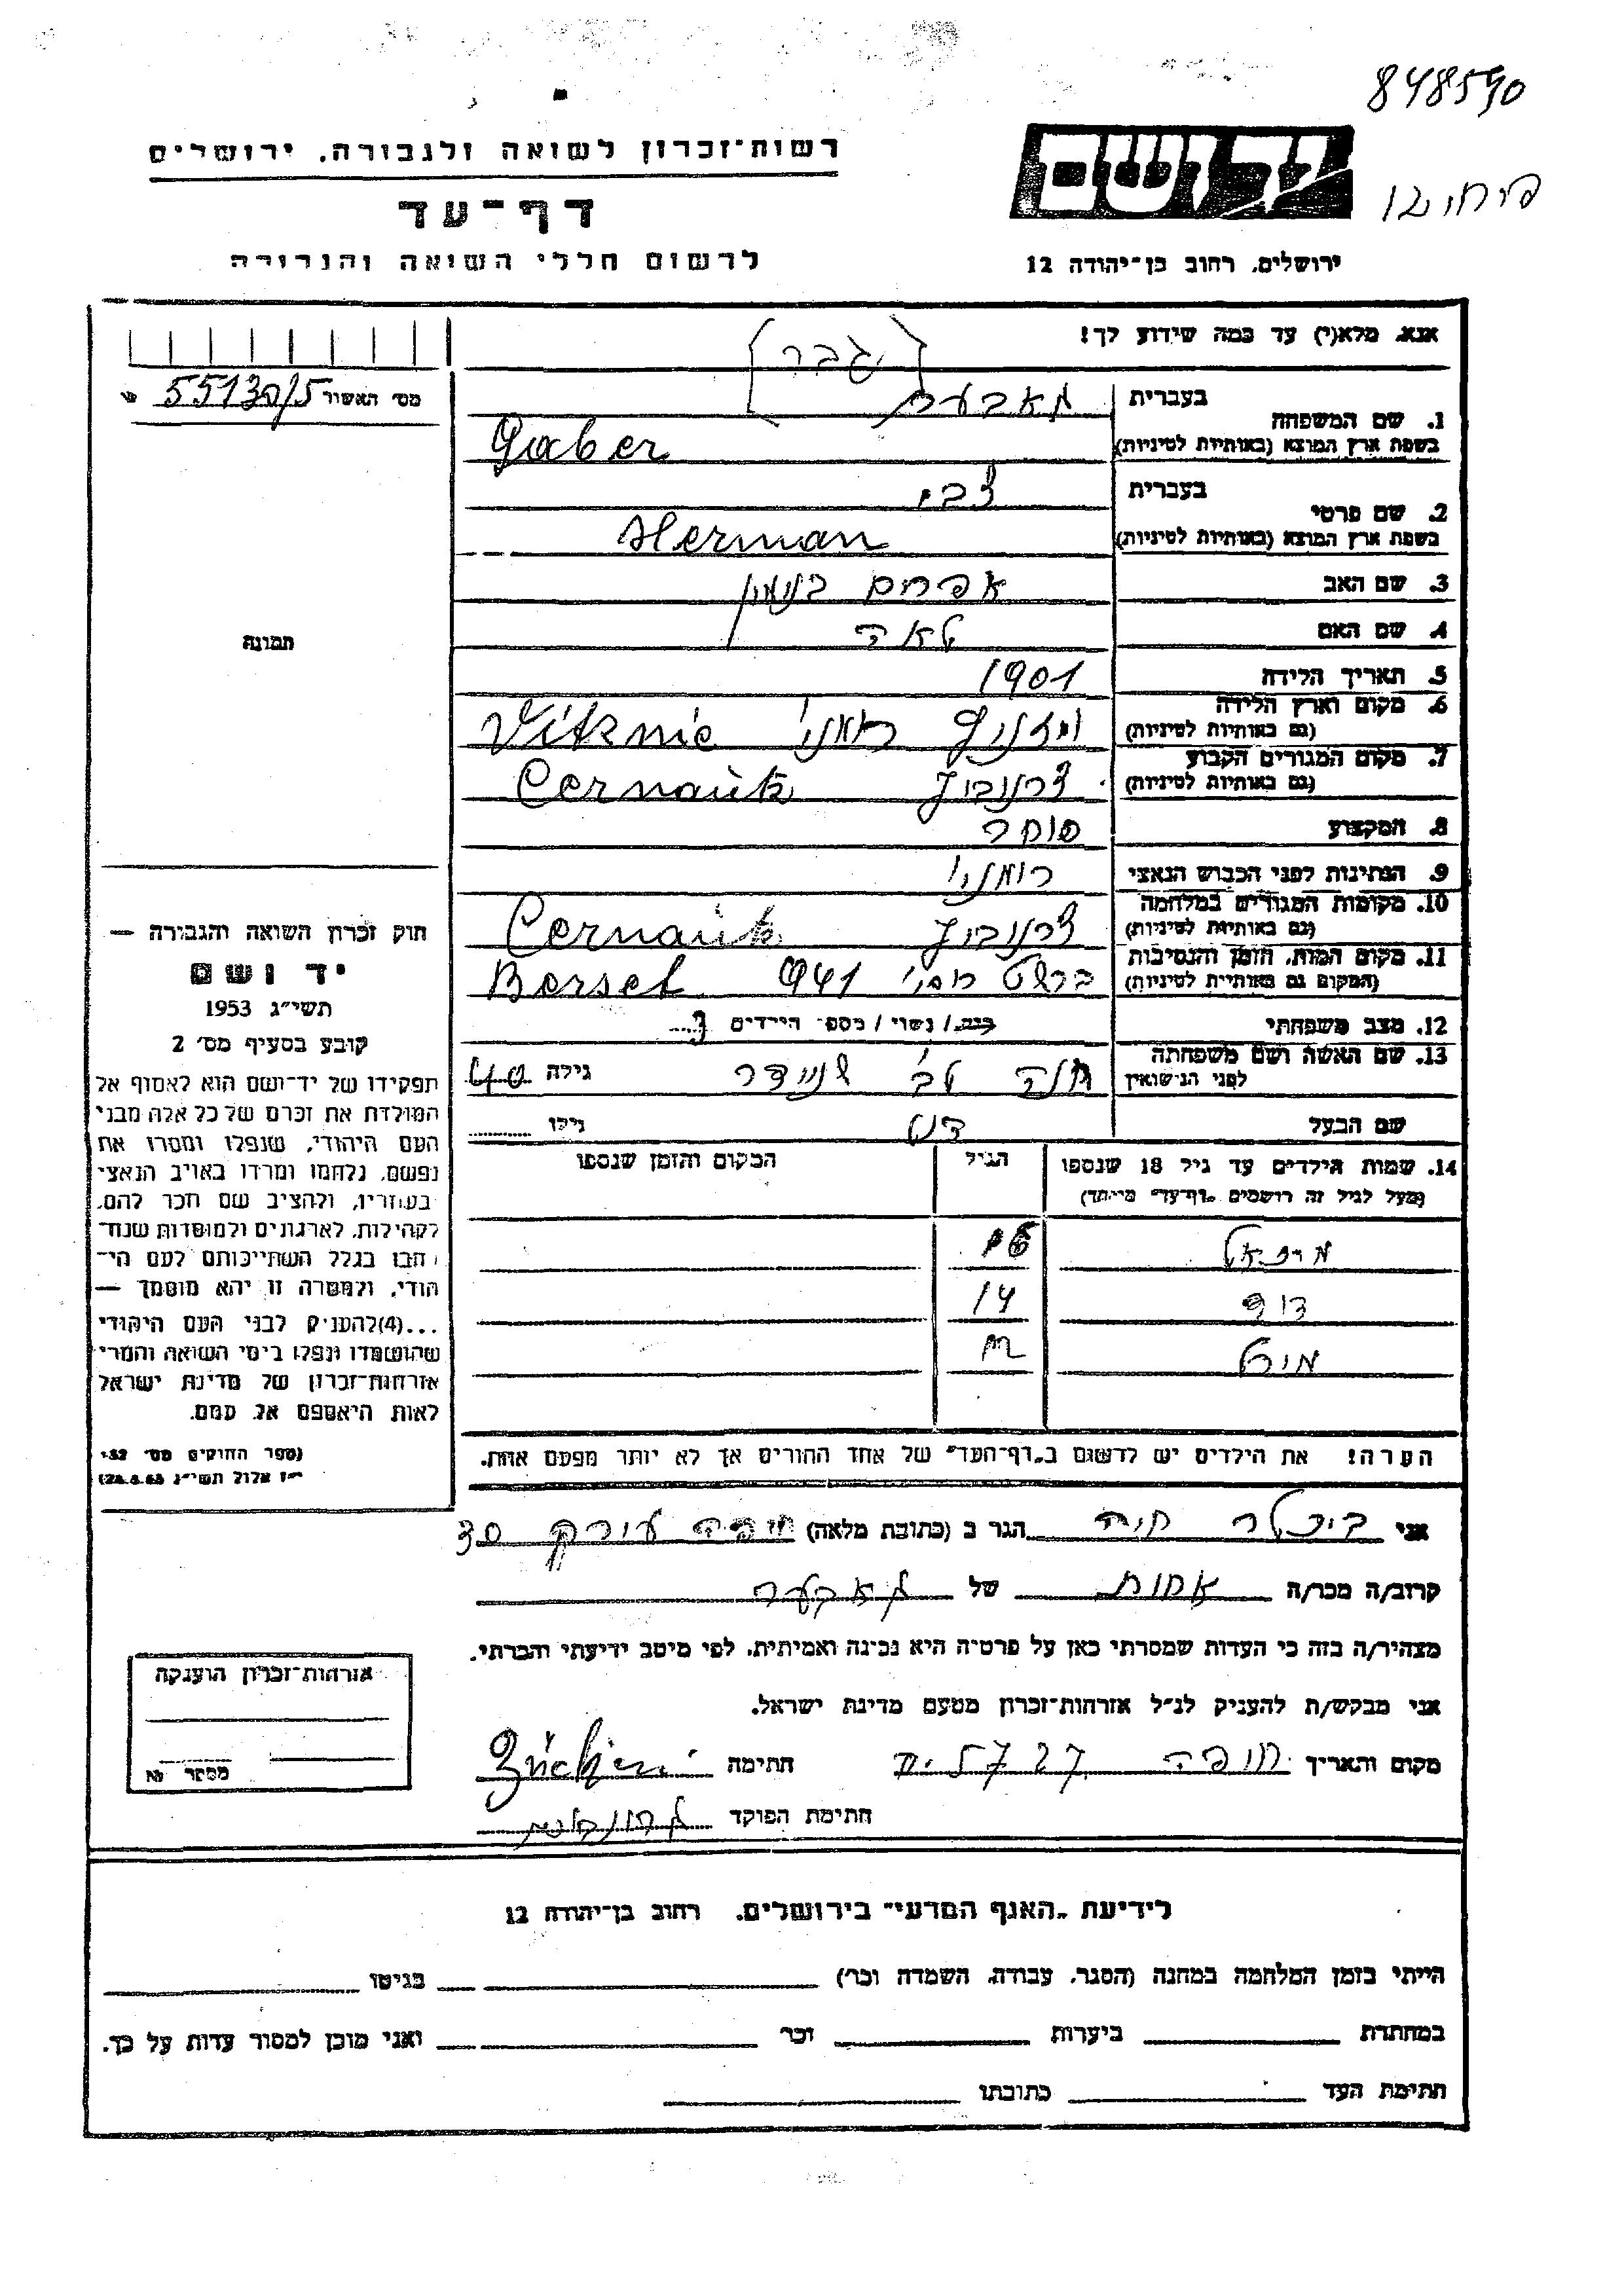 848590
רשות־זכרון לשואה ולגבורה. ירושלים
דף־עד
לרשום חללי השואה והגבורה
יד ושם
ירושלים. רחוב בן־יהודה 12
אנא. מלא(י) עד כמה שידוע לך!
מס׳ האשור 55130/5
(גבר)
1. שם המשפחה
בעברית
בשפת ארץ המוצא (באותיות לטיניות)
Gaber
2. שם פרטי
בעברית צבי
בשפת ארץ המוצא (באותיות לטיניות) Herman
3. שם האב אפרים בנימין
4. שם האם לאה
5. תאריך הלידה 1901
6. מקום וארץ הלידה
(גם באותיות לטיניות)
Vitznic
7. מקום המגורים הקבוע
(גם באותיות לטיניות)
צרנוביץ Cernautz
8. המקצוע סוחר
9. הנתינות לפני הכבוש הנאצי רומני
10. מקומות המגורים במלחמה
(גם באותיות לטיניות)
צרנוביץ Cernautz
11. מקום המות, הזמן והנסיבות
(המקום גם באותיות לטיניות)
941 Berset
12. מצב משפחתי רווק / נשוי / מספר הילדים 3
13. שם האשה ושם משפחתה
לפני הנישואין
שניידר גילה 40
שם הבעל גילו
14. שמות הילדים עד גיל 18 שנספו
(מעל לגיל זה רושמים „דף־עד״ מיוחד)
הגיל
המקום והזמן שנספו
16
14
הערה! את הילדים יש לרשום ב„דף־העד״ של אחד ההורים אך לא יותר מפעם אחת.
תמונה
חוק זכרון השואה והגבורה —
יד ושם
תשי״ג 1953
קובע בסעיף מס׳ 2
תפקידו של יד־ושם הוא לאסוף אל
המולדת את זכרם של כל אלה מבני
העם היהודי, שנפלו ומסרו את
נפשם, נלחמו ומרדו באויב הנאצי
בעוזריו, ולהציב שם וזכר להם,
לקהילות, לארגונים ולמוסדות שנח־
רבו בגלל השתייכותם לעם הי־
הודי, ולמטרה זו יהא מוסמך —
...(4)להעניק לבני העם היהודי
שהושמדו ונפלו בימי השואה והמרי
אזרחות־זכרון של מדינת ישראל
לאות היאספם אל עמם.
(ספר החוקים מס׳ 132
י״ז אלול תשי״ג 28.8.53)
אני חיה הגר ב (כתובת מלאה) חיפה 30
קרוב/ה מכר/ה אחות של
מצהיר/ה בזה כי העדות שמסרתי כאן על פרטיה היא נכונה ואמיתית, לפי מיטב ידיעתי והכרתי.
אני מבקש/ת להעניק לנ״ל אזרחות־זכרון מטעם מדינת ישראל.
מקום ותאריך חיפה חתימה
חתימת הפוקד
אזרחות־זכרון הוענקה
מספר №
לידיעת „האגף המדעי״ בירושלים. רחוב בן־יהודה 12
הייתי בזמן המלחמה במחנה (הסגר, עבודה, השמדה וכו׳) בגיטו
במחתרת ביערות וכו׳ ואני מוכן למסור עדות על כך.
חתימת העד כתובתו